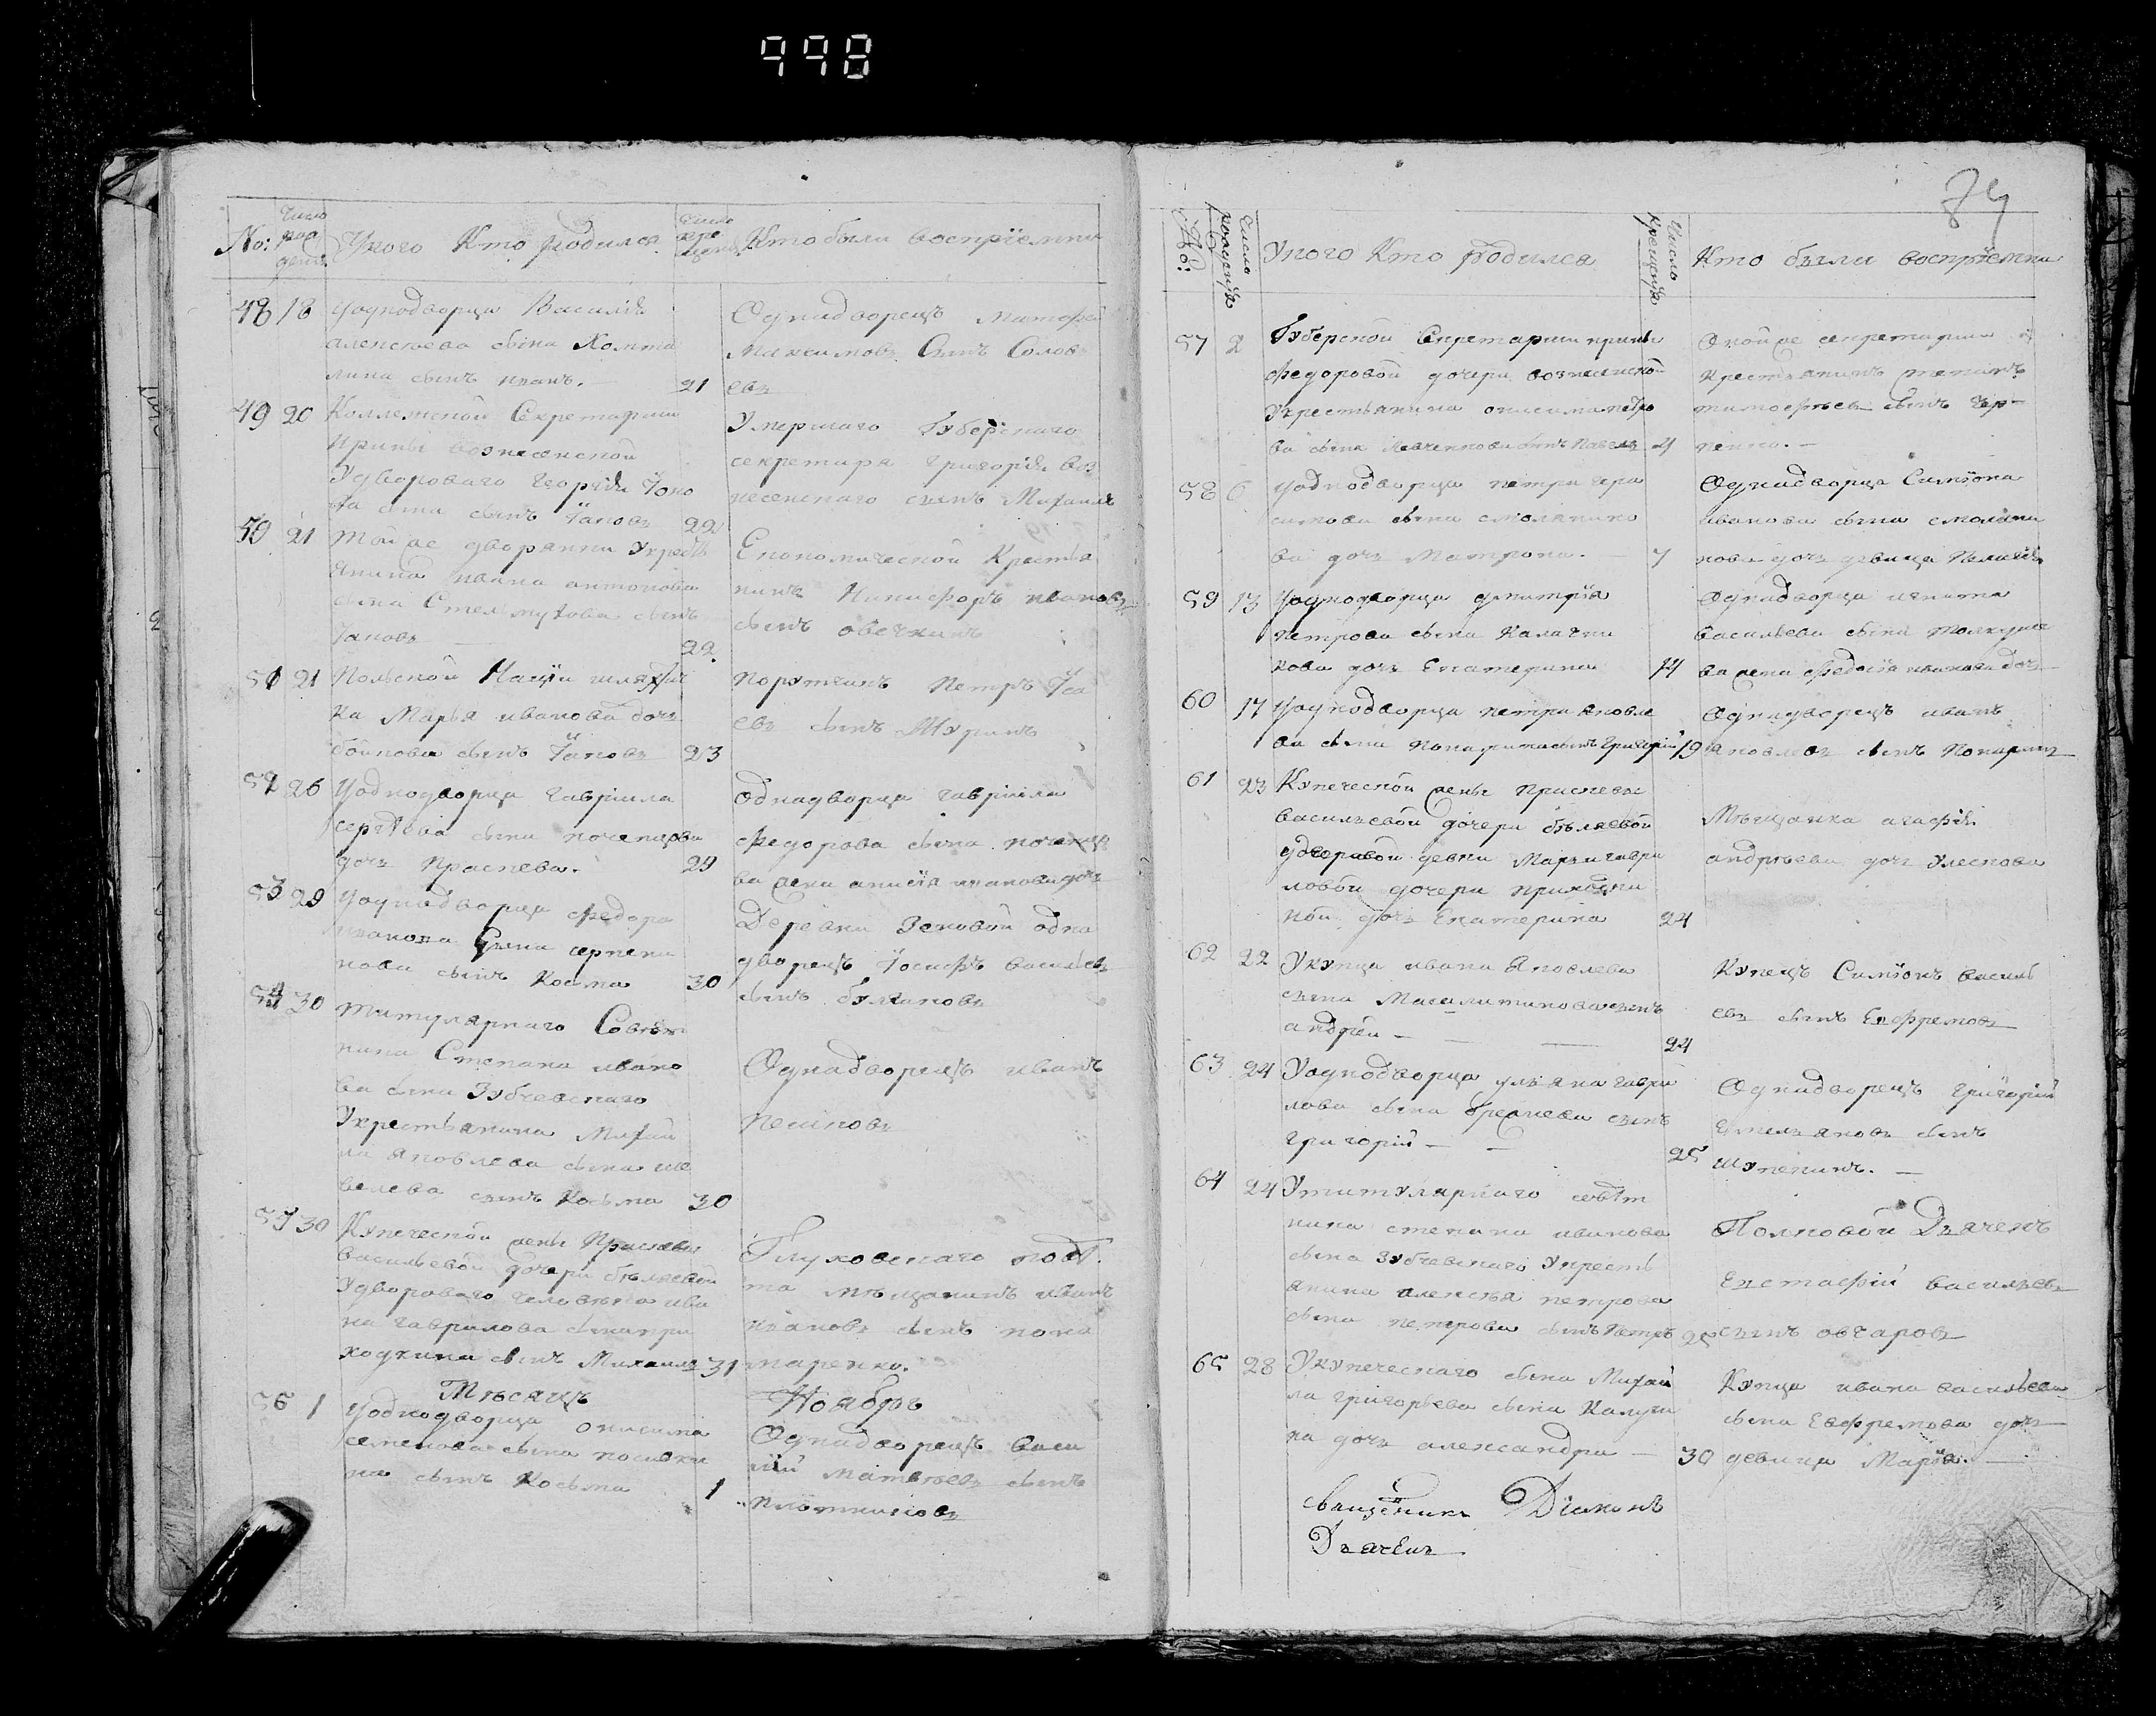 998
84
No: Число рождения Укого Кто родился Число крещения Кто были восприемни
48 18 Уоднодворца Василія
алексѣева сына Холта
лина сынъ иванъ. 21
Однадворецъ Матфей
Максимовъ Сынъ Солов
евъ
49 20 Коллежской Секретарши
ирины вознесенской
Удвороваго Георгія
сына сынъ Іаковъ 22
Умершаго Губернскаго
секретаря григорія воз
несенскаго сынъ Михаилъ
50 21 Тойже дворянки Укресть
янина ивана антонова
сына сынъ
Іаковъ 22
Економической Крестья
нинъ Никифоръ ивановъ
сынъ овечкинъ
51 21 Польской Націи шляхтич
ка Марья иванова дочь
сынъ Іаковъ 23
Порутчикъ Петръ Іса
евъ сынъ Журинъ
52 26 Уоднодворца гавріила
сергѣева сына почепцова
дочь праскева. 29
однадворца гавріила
федорова сына почепцо
ва жена анисія иванова дочь
53 29 Уоднодворца федора
иванова сына
сынъ Косьма 30
Деревни Зековой одна
дворецъ Іосифъ васильевъ
сынъ булгаковъ
54 30 Титулярнаго Совѣт
ника Степана ивано
ва сына Зубчевскаго
Укрестьянина Михаи
ла яковлева сына ше
велева сынъ Косьма 30
Однадворецъ иванъ
55 30 Купеческой жены Праскевы
васильевой дочери бѣляевой
Удвороваго человѣка ива
на гаврилова сына при
ходкина сынъ Михаилъ 31
Глуховскаго повѣ
та мѣщанинъ иванъ
ивановъ сынъ пона
маренко.
Мѣсяцъ Ноябрь
56 1 Уоднодворца онисима
семенова сына
на сынъ Косьма 1
Однадворецъ васи
лій матвѣевъ сынъ
плотниковъ
No: Число рожденія Укого Кто родился Число крещенія Кто были воспріемни
57 2 Губерской Секретарши ирины
федоровой дочери вознесенской
Укрестьянина онисима петро
ва сына сынъ Павелъ 4
Онойже секретарши
крестьянинъ
тимофѣевъ сынъ
58 6 Уоднодворца петра гера
симова сына смоляніко
ва дочь Матрона. 7
Однадворца Симіона
иванова сына смоляни
кова дочь девица Пелагія
59 13 Уоднодворца дмитрія
петрова сына Калачни
кова дочь Екатерина 14
Однадворца никита
васильева сына
ва жена федосія иванова дочь
60 17 Уоднодворца петра яковле
ва сына сынъ григорій 19
Однадворецъ иванъ
яковлевъ сынъ
61 23 Купеческой жены Праскевы
васильевой дочери бѣляевой
удворовой девки Марьи гаври
ловой дочери приходки
ной дочь Екатерина 24
Мѣщанка агафія
андрѣева дочь
62 22 Укупца ивана Яковлева
сына Масалитинова сынъ
андрѣй 24
Купецъ Симіонъ василь
евъ сынъ Евфремовъ
63 24 Уоднодворца ульяна гаври
лова сына сынъ
григорій 25
Однадворецъ Григорій
Емельяновъ сынъ
64 24 Утитулярнаго совѣт
ника степана иванова
сына Зубчевскаго Укресть
янина алексѣя петрова
сына петрова сынъ Петръ 25
Полковой Дьячекъ
Евстафій васильевъ
сынъ овчаровъ
65 28 Укупеческаго сына Михаи
ла григорьева сына Калуги
на дочь александра 30
Купца ивана васильева
сына Евфремова дочь
девица Марія.
священникъ Діаконъ
Дьячекъ